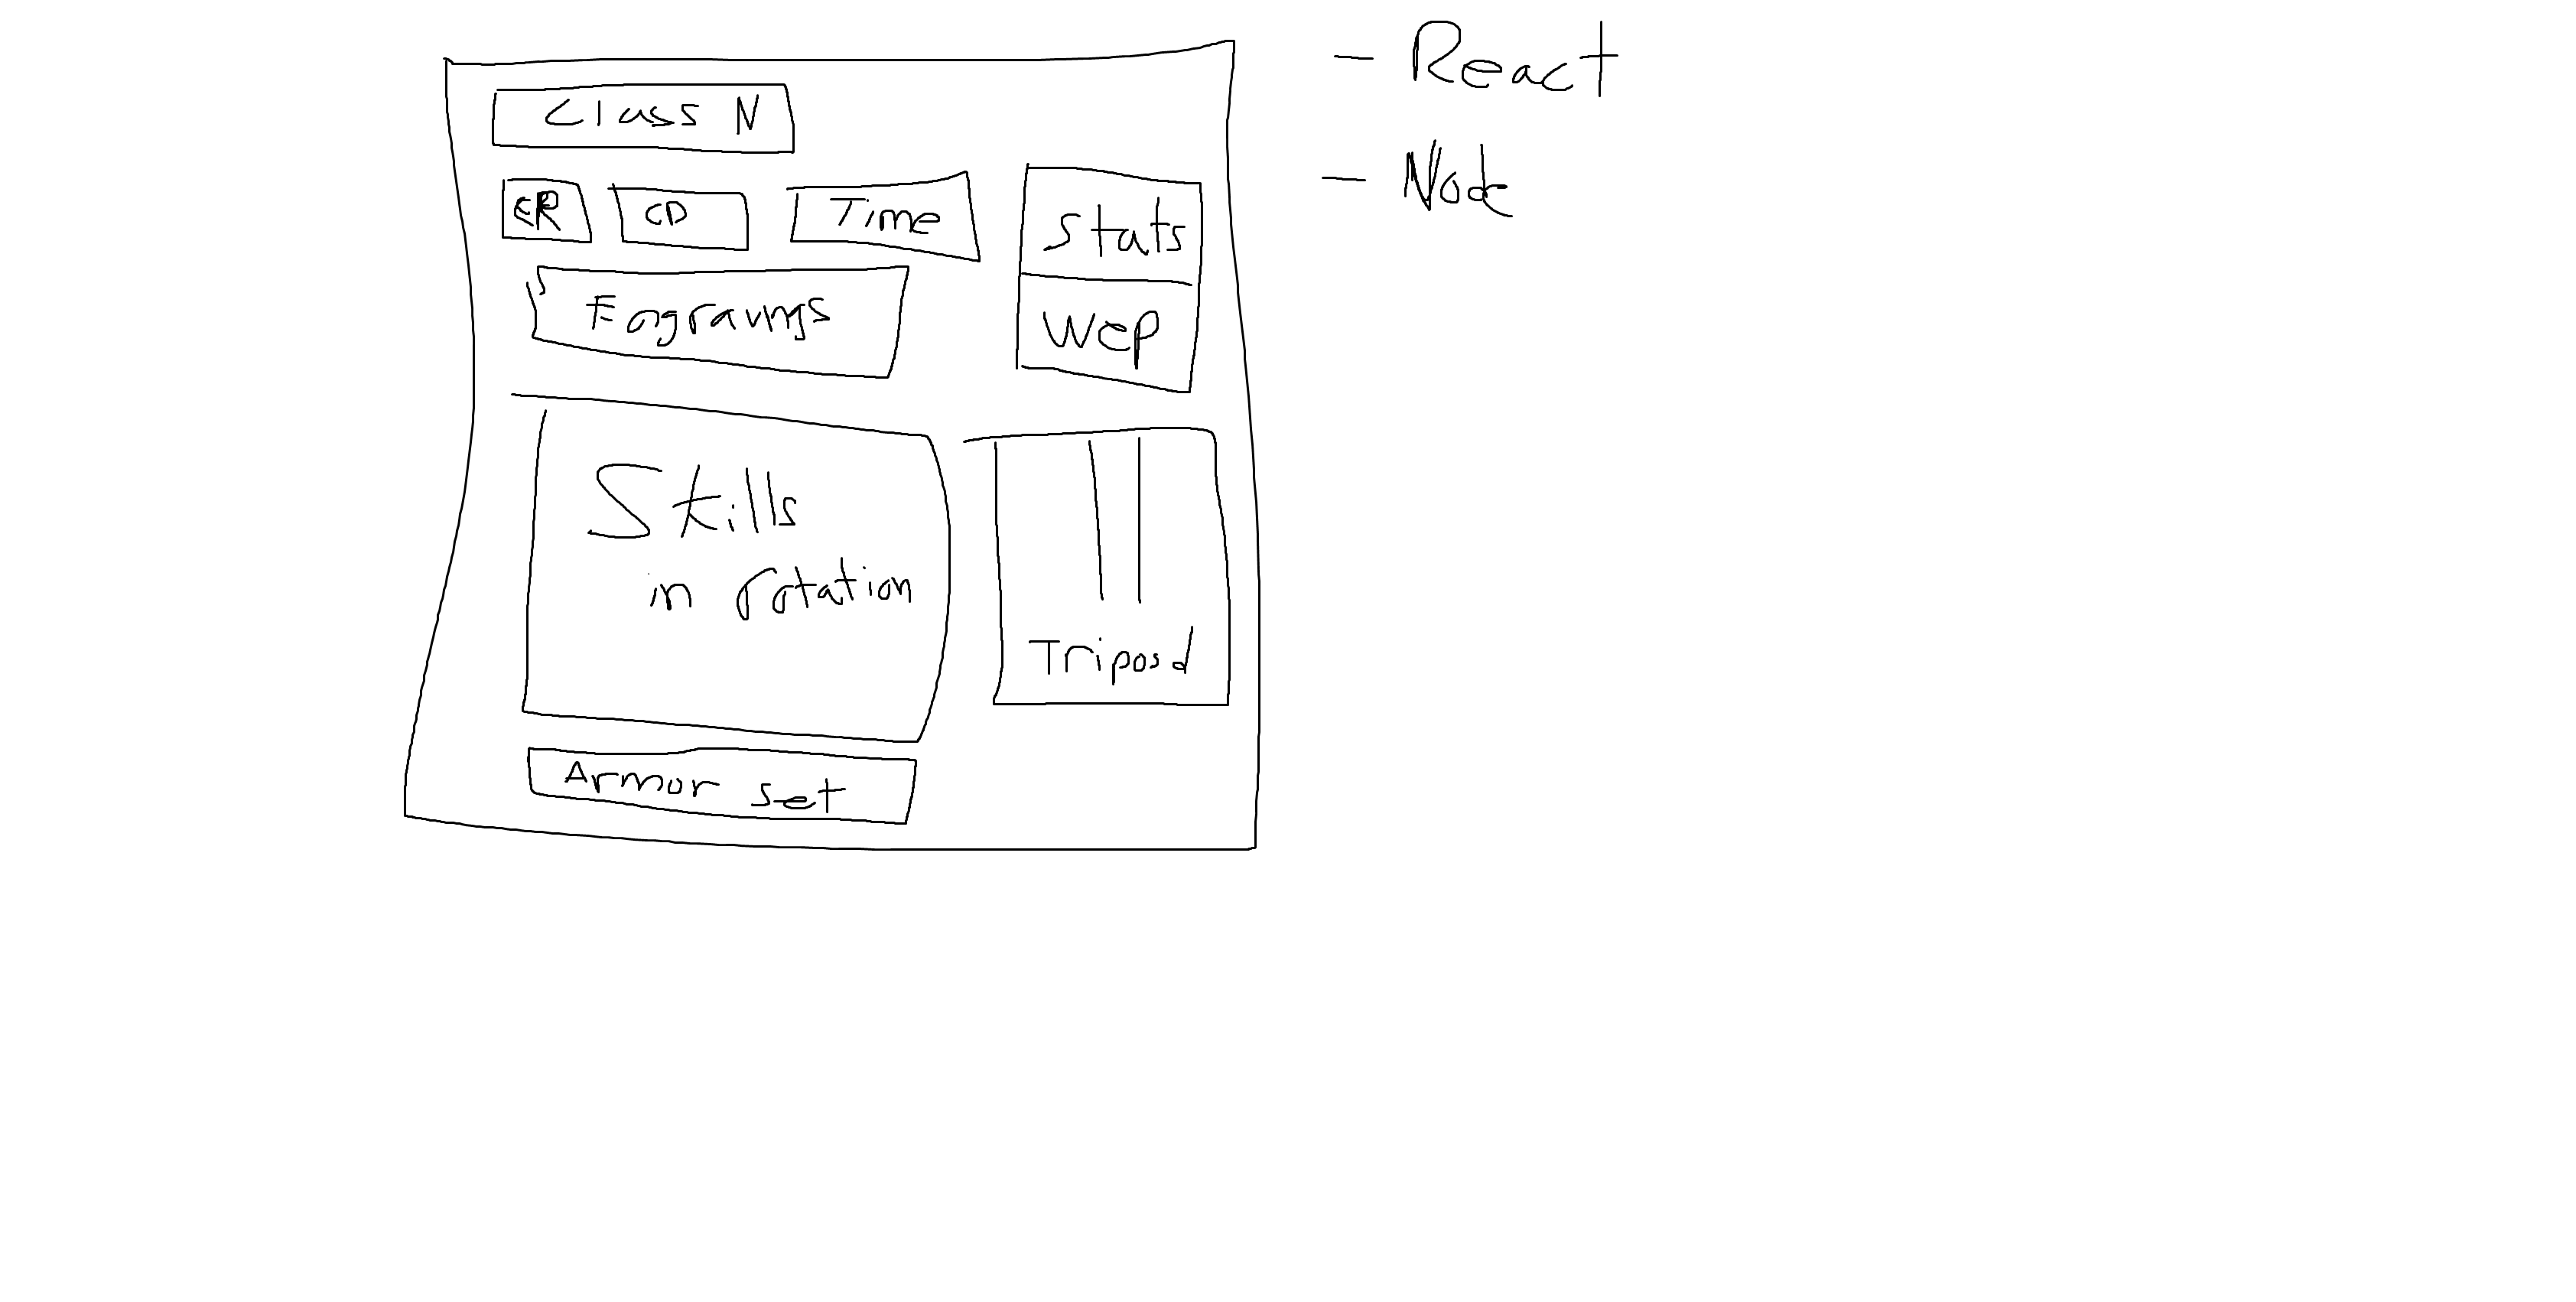 Class N
CR
CD
Time
Engravings
Stats
Wep
Skills
in rotation
Triposd
Armor set
- React
- Node